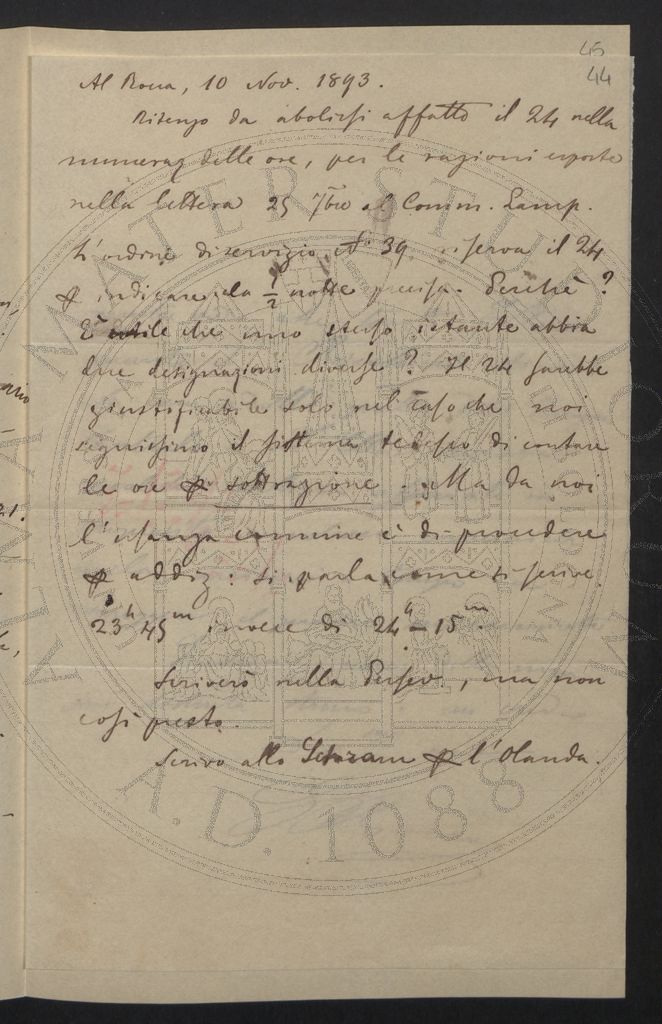 45
44
Al Rocca, 10 Nov. 1893.
Ritengo da abolirsi affatto il 24 nella
numeraz delle ore, per le ragioni esposte
nella lettera 25 7bre al Comm. Lamp.
L'ordine di servizio N. 39 riserva il 24
p indicare la 1/2 notte precisa. Perchè?
È utile che uno stesso istante abbia
due designazioni diverse? Il 24 sarebbe
giustificabile solo nel caso che noi
seguissimo il sistema tedesco di contare
le ore p sottrazione. Ma da noi
l'usanza comune è di procedere
p addiz: si parla come si scrive
23h 45m invece di 24h - 15m
Scriverò nella Persev., ma non
così presto.
Scrivo allo Schram p l'Olanda.
ALMA MATER STUDIORUM
A.D. 1088